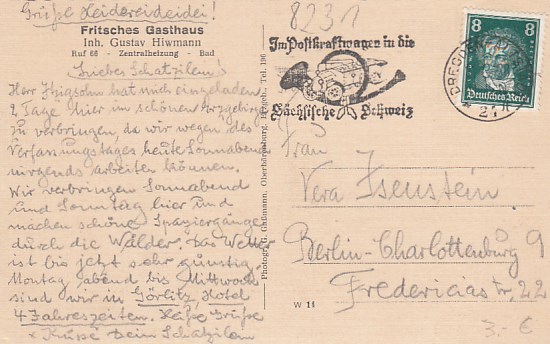 Grüße Heidereideidei!
Fritsches Gasthaus
Inh. Gustav Hiwmann
Ruf 66 - Zentralheizung - Bad
Liebes Schatzilein!
Herr Hugsohn hat mich eingeladen
2 Tage hier im schönen Erzgebirge
zu verbringen da wir wegen des
Verfassungstages heute Sonnabend
nirgends arbeiten können.
Wir verbringen Sonnabend
und Sonntag hier und
machen schöne Spaziergänge
durch die Wälder. Das Wetter
ist bis jetzt sehr günstig
Montag abend bis Mittwoch
sind wir in Görlitz Hotel
4 Jahreszeiten. Heiße Grüße
+ Küsse Dein Schatzilein
Photogr. G. Gaßmann, Oberbärenburg, Erzgeb., Tel. 196
8231
Im Postkraftwagen in die
Sächsische Schweiz
DRESDEN
8 8
Deutsches Reich
Frau
Vera Isenstein
Berlin-Charlottenburg 9
Fredericiastr. 22
W 14
3.- €